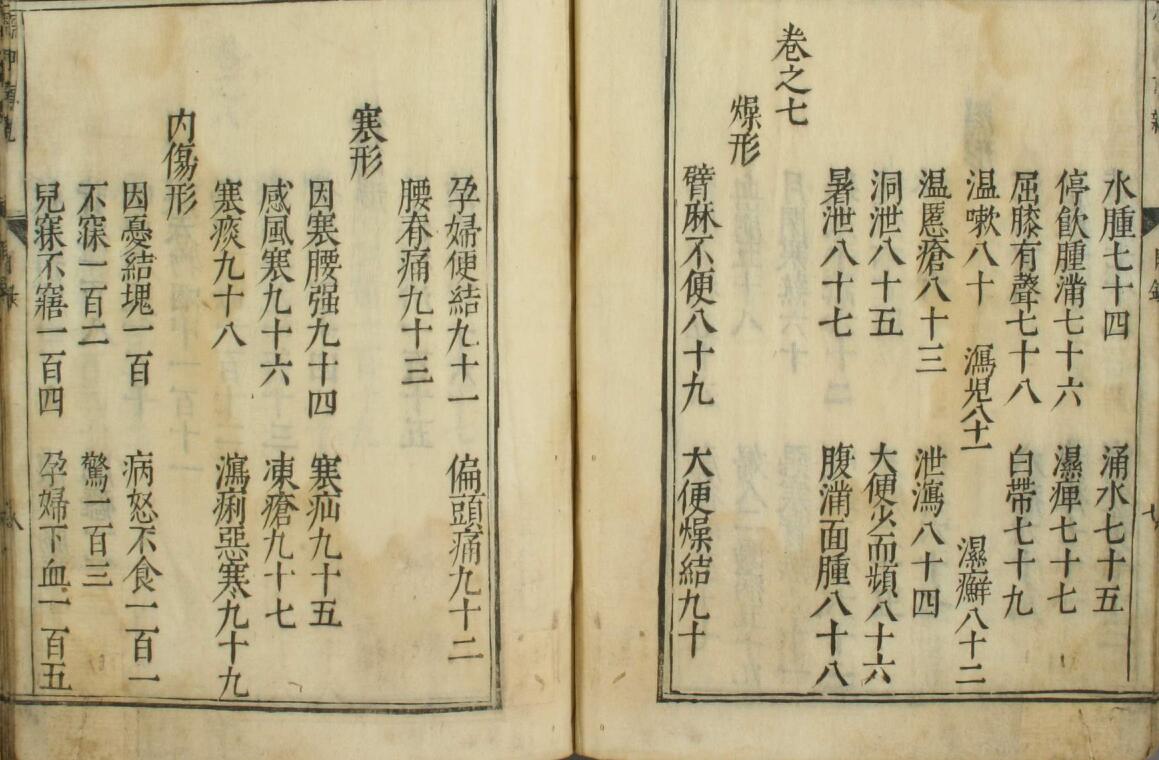 水腫七十四 涌水七十五
停飲腫滿七十六 濕痺七十七
屈膝有聲七十八 白帶七十九
温嗽八十 瀉兒八十一 濕癬八十二
温䘌瘡八十三 泄瀉八十四
洞泄八十五 大便少而頻八十六
暑泄八十七 腹滿面腫八十八
卷之七
燥形
臂麻不便八十九 大便燥結九十
孕婦便結九十一 偏頭痛九十二
腰脊痛九十三
寒形
因寒腰强九十四 寒疝九十五
感風寒九十六 凍瘡九十七
寒痰九十八 瀉痢惡寒九十九
内傷形
因憂結塊一百 病怒不食一百一
不寐一百二 驚一百三
兒寐不寤一百四 孕婦下血一百五
目録
七
八